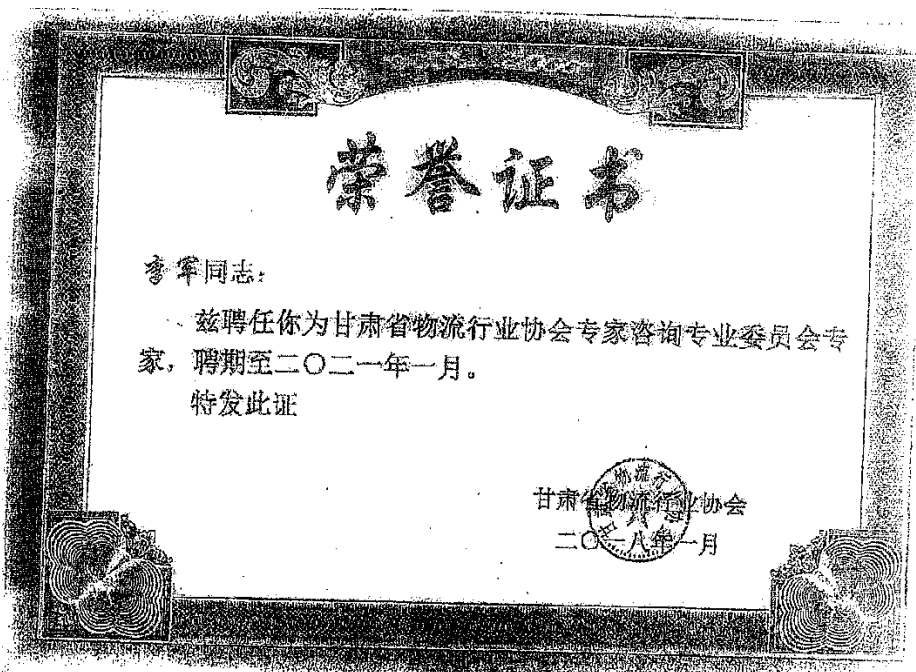 荣誉证书
李军同志：
兹聘任你为甘肃省物流行业协会专家咨询专业委员会专
家，聘期至二〇二一年一月。
特发此证
甘肃省物流行业协会
二〇一八年一月